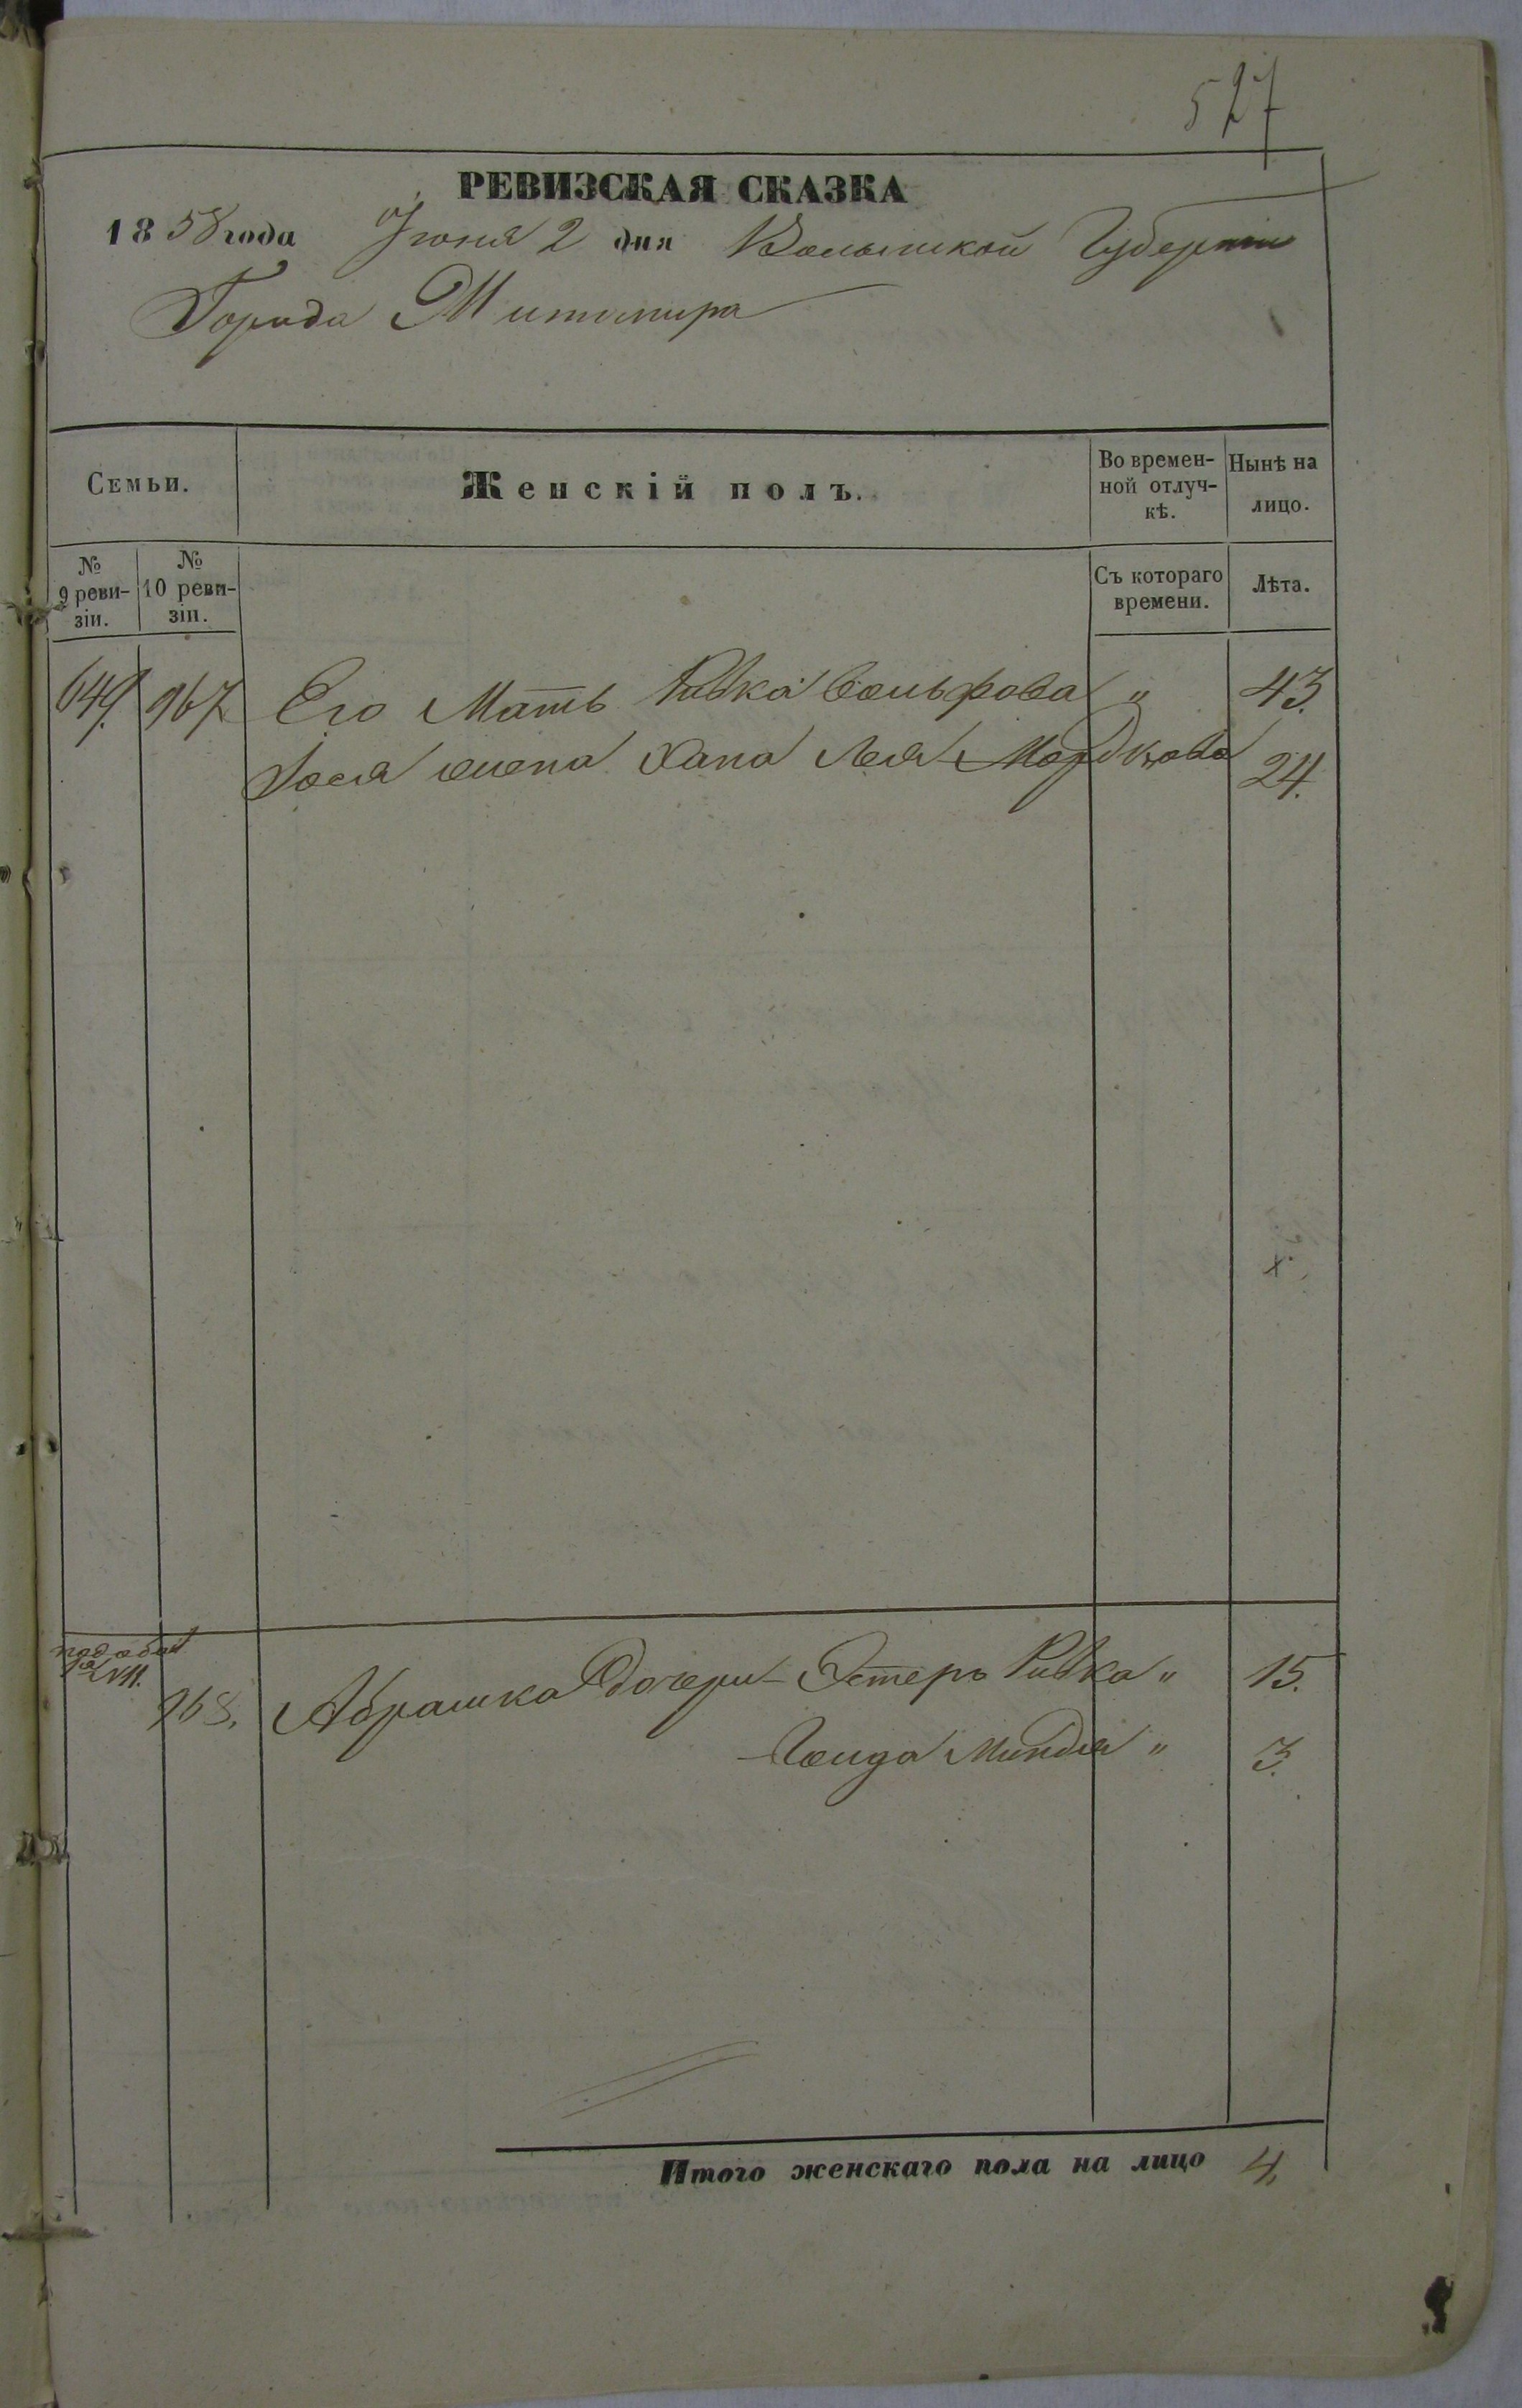 527
РЕВИЗСКАЯ СКАЗКА
1858 года Июня 2 дня Волынской Губернии
Города Житомира
Семьи.
Женскій полъ.
Во времен-
ной отлуч-
кѣ.
Нынѣ на
лицо.
№
9 реви-
зіи.
№
10 реви-
зіи.
Съ котораго
времени.
Лѣта.
649. 967 Его Мать Ривка Вольфова " 43.
Іося жена Хана Лея Мордкова 24.
968. Абрашка Дочери Эстеръ Ривка " 15.
Миндля " 3.
Итого женскаго пола на лицо 4.